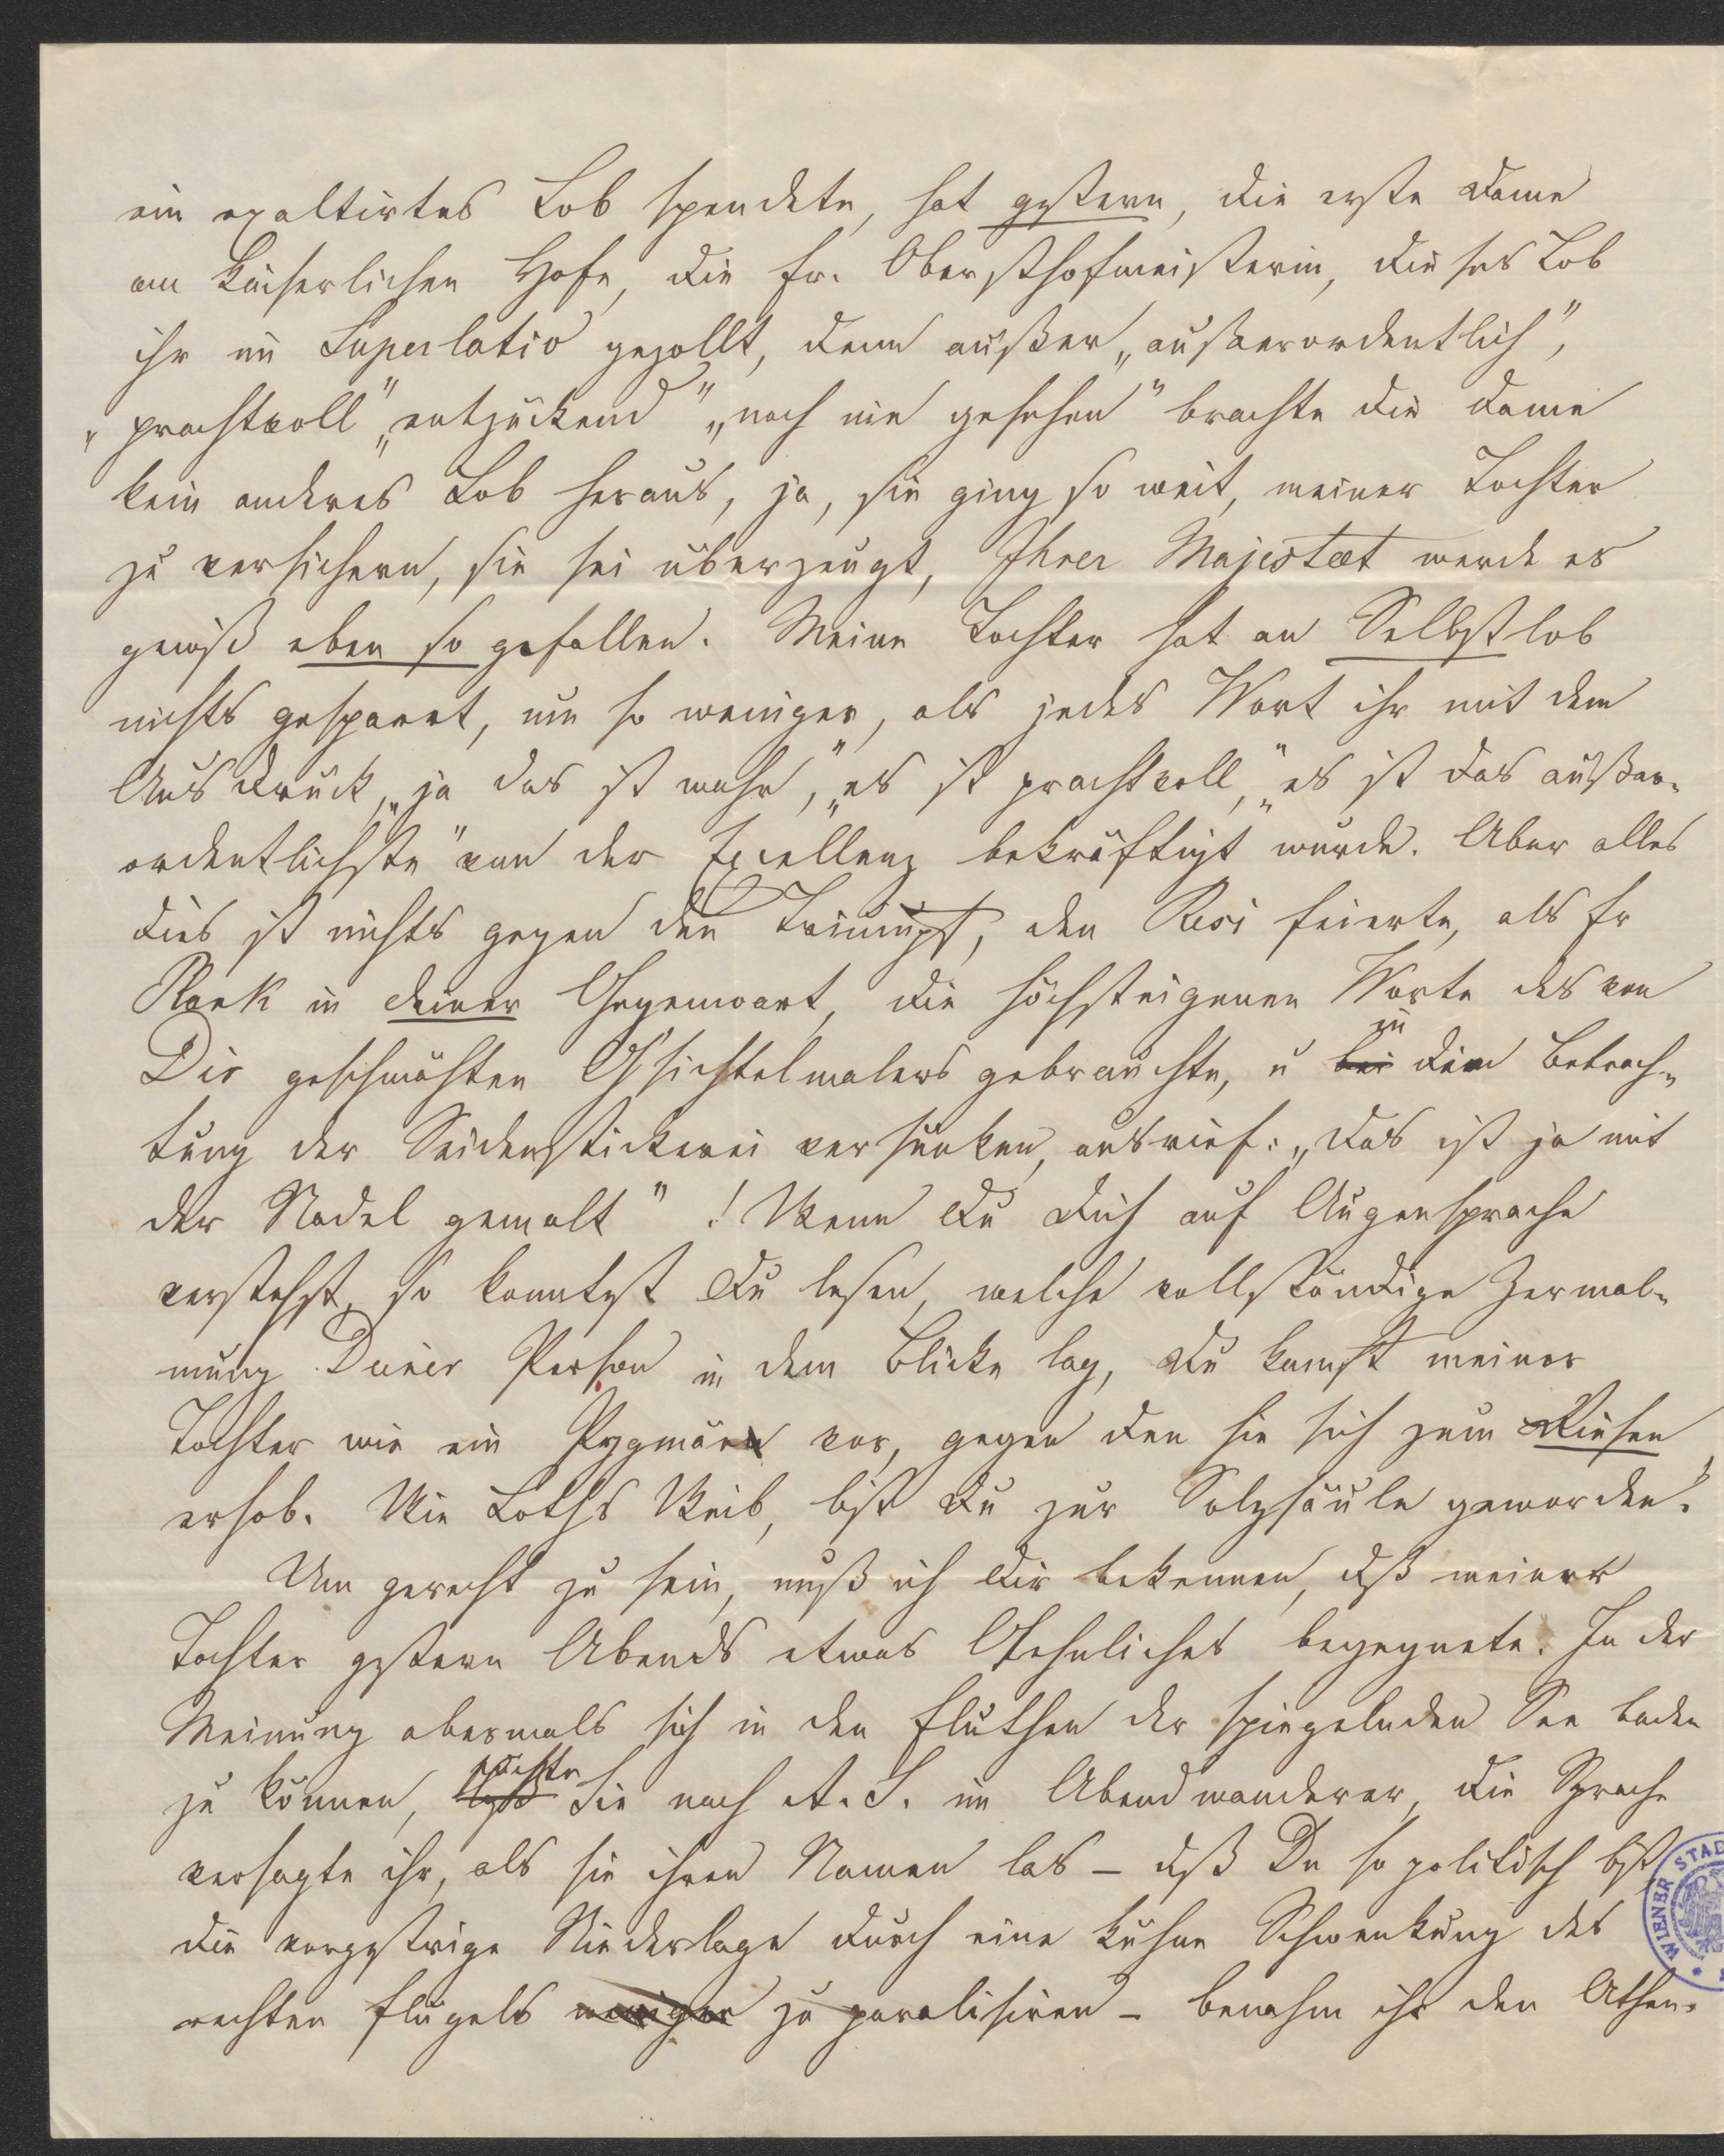 ein exaltirtes Lob spendete, hat gestern, die erste Dame
am kaiserlichen Hofe, die Fr. Obersthofmeisterin, dieses Lob
ihr im Superlativ gezollt, denn außer „außerordentlich”,
„prachtvoll” „entzückend” „noch nie gesehen” brachte die Dame
kein anderes Lob heraus, ja, sie ging so weit, meiner Tochter
zu versichern, sie sei überzeugt, Ihrer Majestæt werde es
gewiß eben so gefallen. Meine Tochter hat an Selbstlob
nichts gespart, um so weniger, als jedes Wort ihr mit dem
Ausdruck „ja das ist wahr,” „es ist prachtvoll,” „es ist das außer-
ordentlichste” von der Excellenz bekräftigt wurde. Aber alles
dies ist nichts gegen den Triumpf, den Resi feierte, als Fr
Plank in deiner Gegenwart, die höchsteigenen Worte des von
Dir geschmähten Gsichtelmalers gebrauchte, u bei in die Betrach-
tung der Seidenstickerei versunken, ausrief: „Das ist ja mit
der Nadel gemalt” ! Wenn Du Dich auf Augensprache
verstehst, so konntest Du lesen, welche vollständige Zermal-
mung Deiner Person in dem Blicke lag, Du kamst meiner
Tochter wie ein Pygmäe vor, gegen den sie sich zum Riesen
erhob. Wie Loths Weib, bist Du zur Salzsäule geworden.
Um gerecht zu sein, muß ich Dir bekennen, dß meiner
Tochter gestern Abends etwas Aehnliches begegnete. In der
Meinung abermals sich in den Fluthen der spiegelnden See baden
zu können, suchte sie nach A. S. im Abendwanderer, die Sprache
versagte ihr, als sie ihren Namen las – dß Du so politisch bist
die vorgestrige Niederlage durch eine kühne Schwenkung des
rechten Flügels weniger zu paralisiren – benahm ihr den Athem.
WIENER STAD